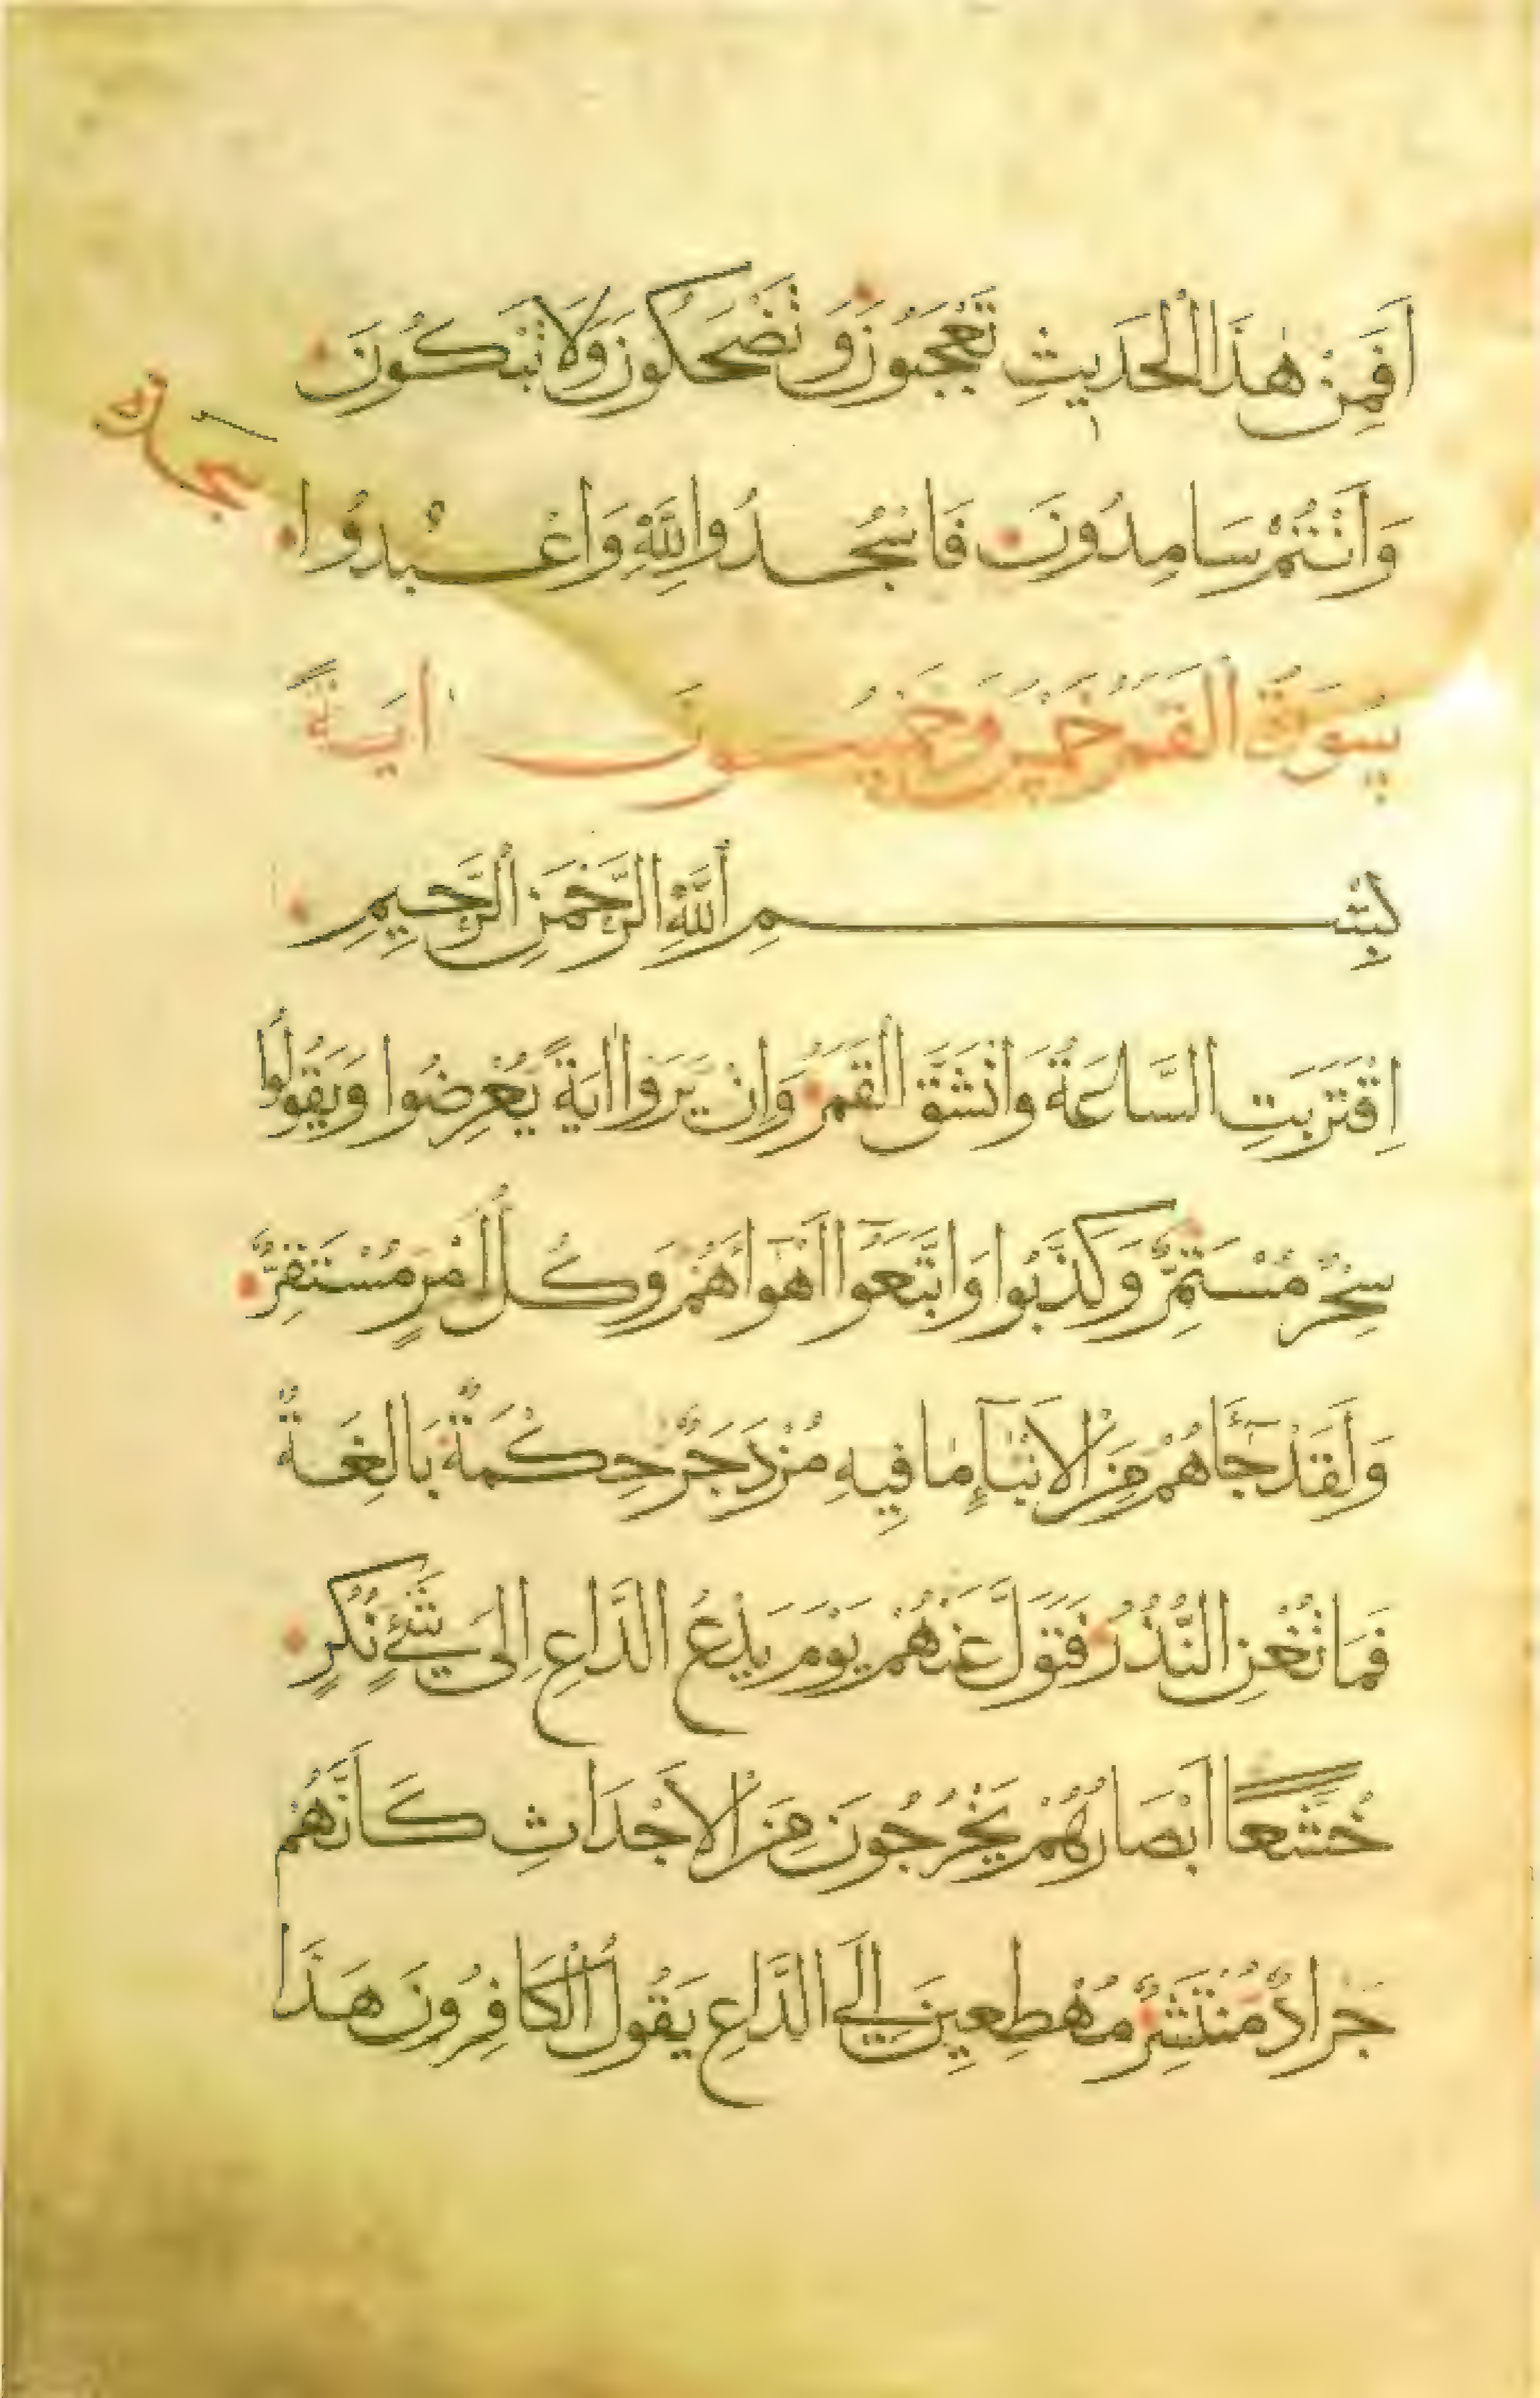 اَفَمِنْ هٰذَا الْحَدِيثِ تَعْجَبُونَ وَ تَضْحَكُونَ وَلَا تَبْكُونَ
سجدة
وَاَنْتُمْ سَامِدُونَ فَاسْجُدُوا لِلّٰهِ وَاعْبُدُوا
سُورَةُ الْقَمَرِ خَمْسٌ وَخَمْسُونَ اٰيَةً
بِسْمِ اللّٰهِ الرَّحْمٰنِ الرَّحِيمِ
اِقْتَرَبَتِ السَّاعَةُ وَانْشَقَّ الْقَمَرُ وَاِنْ يَرَوْا اٰيَةً يُعْرِضُوا وَيَقُولُوا
سِحْرٌ مُسْتَمِرٌّ وَكَذَّبُوا وَاتَّبَعُوا اَهْوَاءَهُمْ وَكُلُّ اَمْرٍ مُسْتَقِرٌّ
وَلَقَدْ جَاءَهُمْ مِنَ الْاَنْبَاءِ مَا فِيهِ مُزْدَجَرٌ حِكْمَةٌ بَالِغَةٌ
فَمَا تُغْنِ النُّذُرُ فَتَوَلَّ عَنْهُمْ يَوْمَ يَدْعُ الدَّاعِ اِلٰى شَيْءٍ نُكُرٍ
خُشَّعًا اَبْصَارُهُمْ يَخْرُجُونَ مِنَ الْاَجْدَاثِ كَاَنَّهُمْ
جَرَادٌ مُنْتَشِرٌ مُهْطِعِينَ اِلَى الدَّاعِ يَقُولُ الْكَافِرُونَ هٰذَا